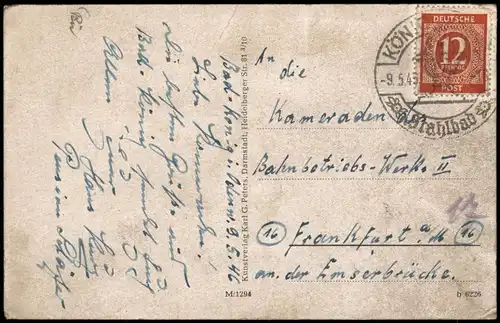 Bad-König i/Odenw. 9.5.46
Liebe Kameraden!
Die besten Grüße aus
Bad-König sendet Euch
Allen
Euer
Hans
An die
Kameraden des
Bahnbetriebs-Werks II
(16) Frankfurt a.M (16)
an der Emserbrücke.
DEUTSCHE
12
PFENNIG
POST
KÖN
-9.5.46
Stahlbad
Kunstverlag Karl G. Peters, Darmstadt, Heidelberger Str. 81 3/10
M:1294
b 6226